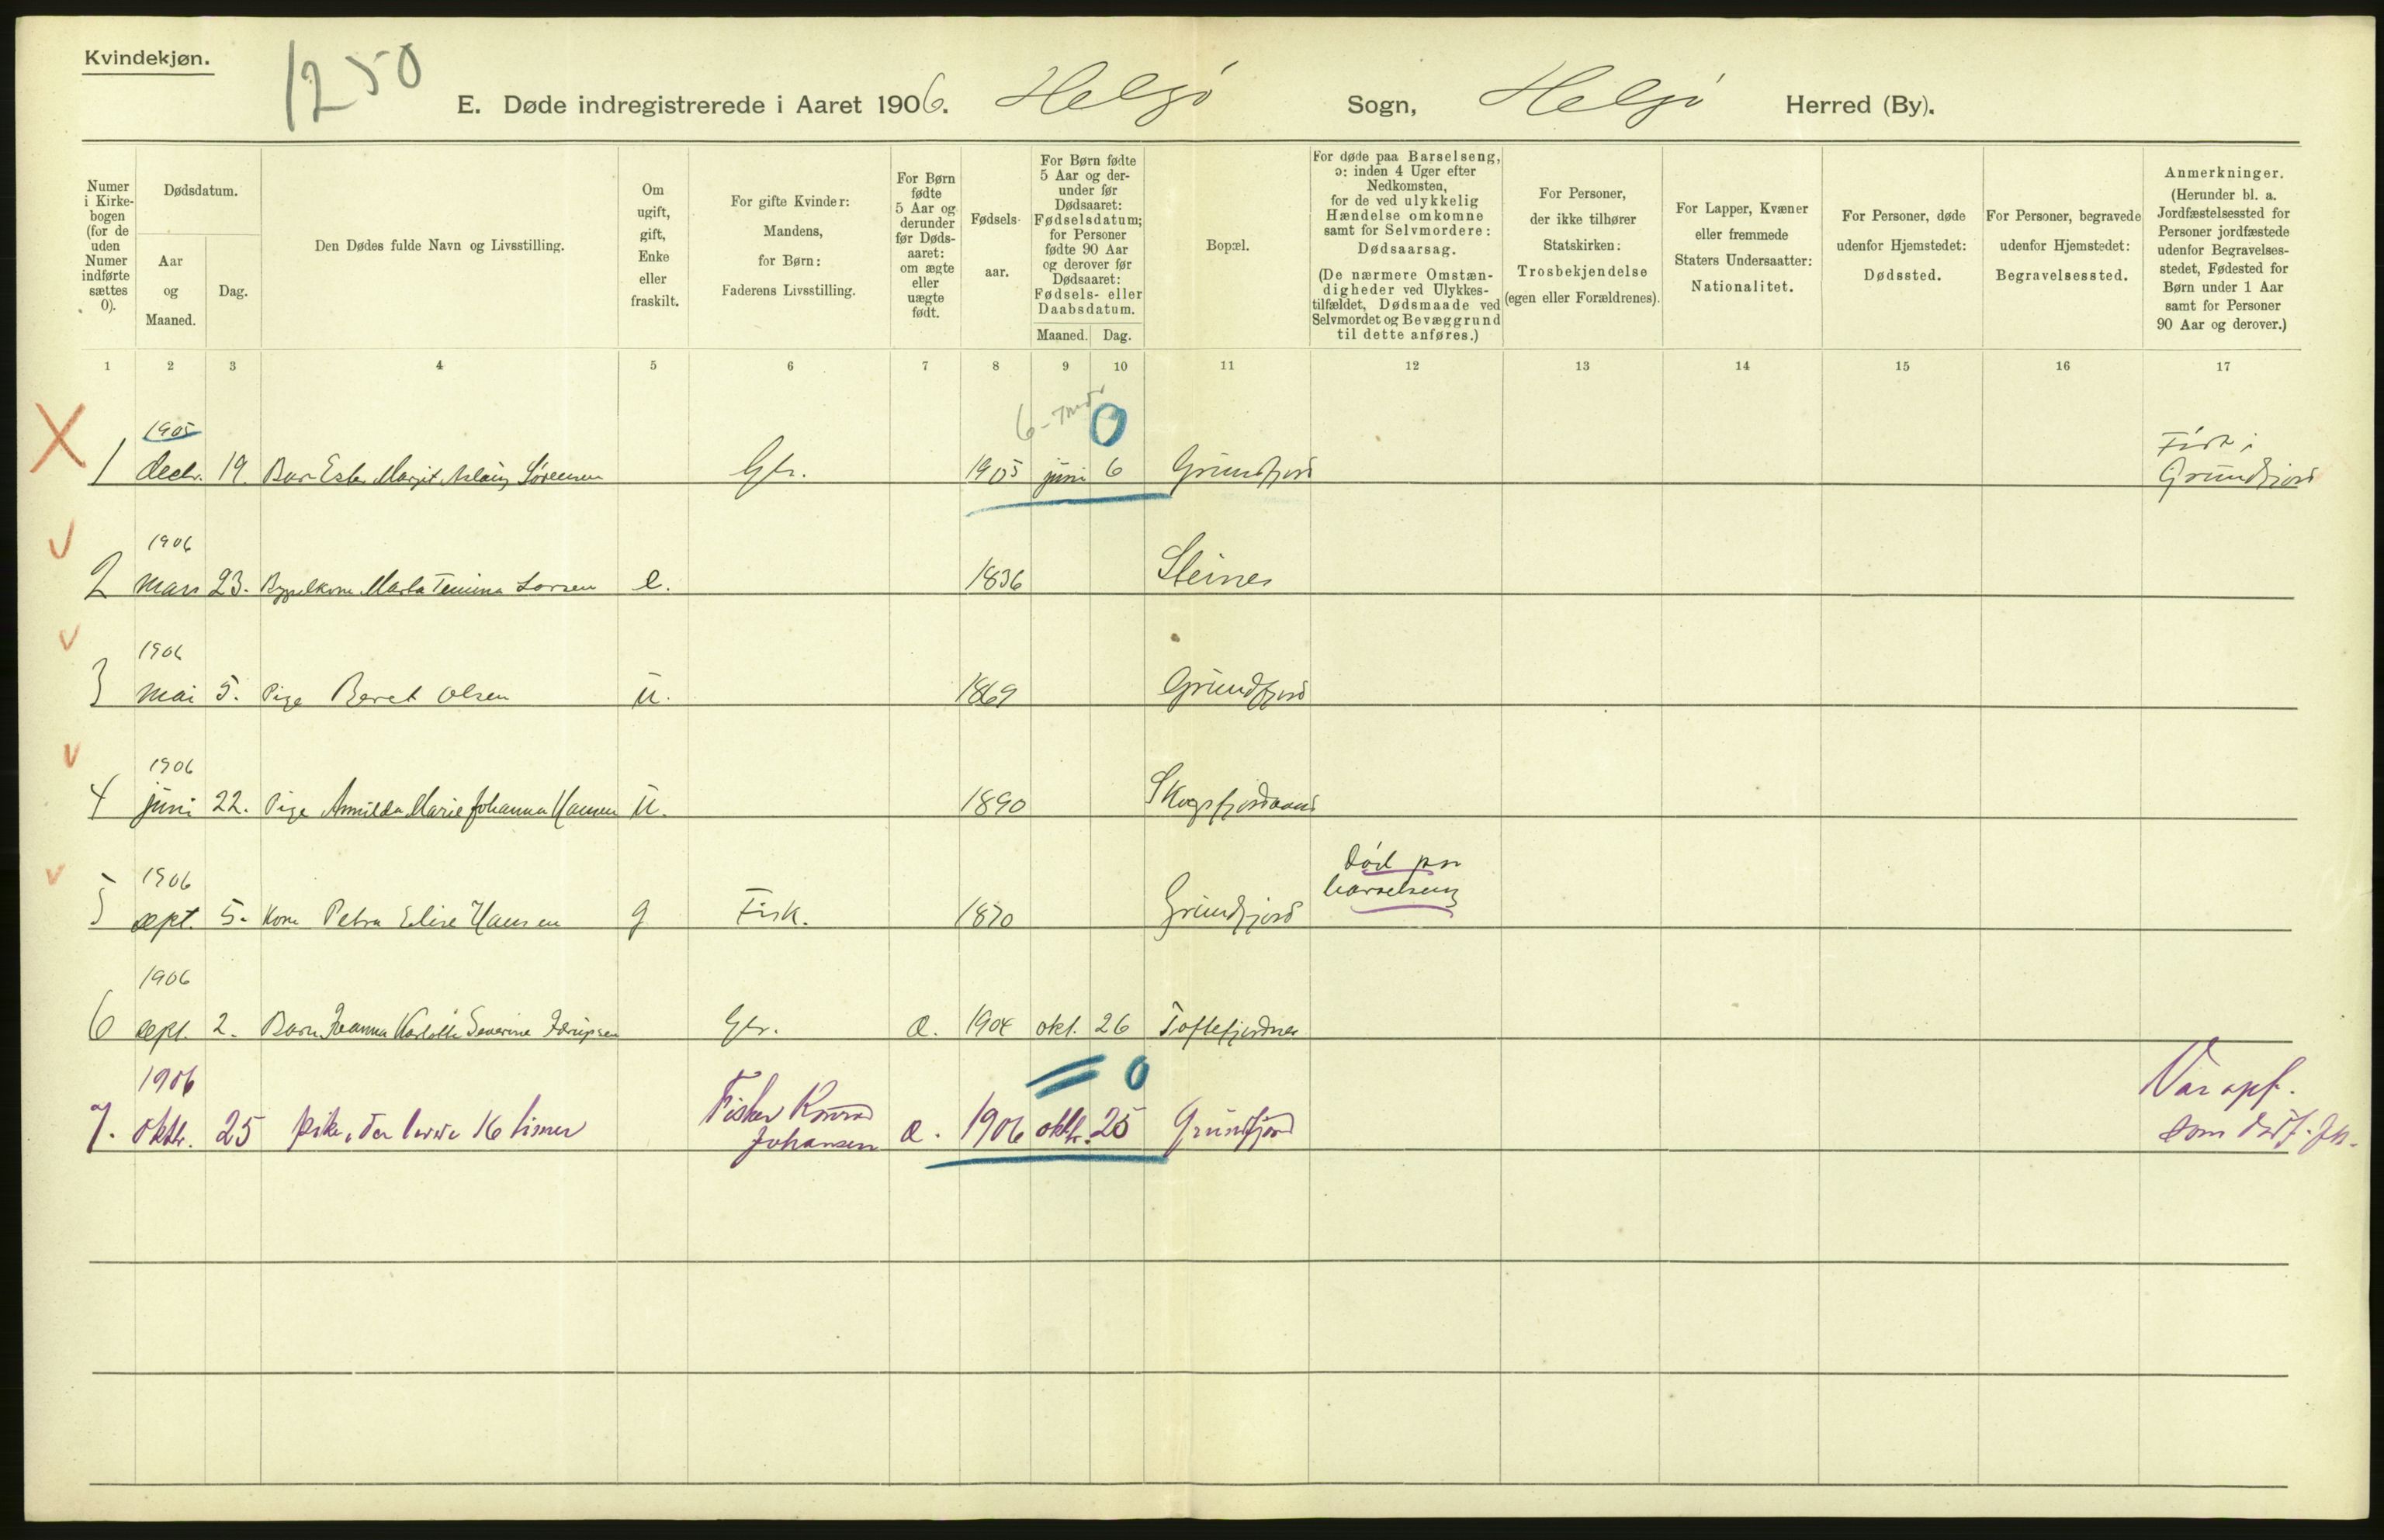 Kvindekjøn.
1250
E. Døde indregistrerede i Aaret 1906. Helgø Sogn, Helgø Herred (By).
Numer i Kirkebogen (for de uden Numer indførte sættes 0).
Dødsdatum.
Aar og Maaned.
Dag.
Den Dødes fulde Navn og Livsstilling.
Om ugift, gift, Enke eller fraskilt.
For gifte Kvinder: Mandens, for Børn: Faderens Livsstilling.
For Børn fødte 5 Aar og derunder før Dødsaaret: om ægte eller uægte født.
Fødselsaar.
For Børn fødte 5 Aar og derunder før Dødsaaret: Fødselsdatum; for Personer fødte 90 Aar og derover før Dødsaaret: Fødsels- eller Daabsdatum.
Maaned. Dag.
Bopæl.
For døde paa Barselseng, ɔ: inden 4 Uger efter Nedkomsten, for de ved ulykkelig Hændelse omkomne samt for Selvmordere: Dødsaarsag.
(De nærmere Omstændigheder ved Ulykkestilfældet, Dødsmaade ved Selvmordet og Bevæggrund til dette anføres.)
For Personer, der ikke tilhører Statskirken: Trosbekjendelse (egen eller Forældrenes).
For Lapper, Kvæner eller fremmede Staters Undersaatter: Nationalitet.
For Personer, døde udenfor Hjemstedet: Dødssted.
For Personer, begravede udenfor Hjemstedet: Begravelsessted.
Anmerkninger.
(Herunder bl. a. Jordfæstelsessted for Personer jordfæstede udenfor Begravelsesstedet, Fødested for Børn under 1 Aar samt for Personer 90 Aar og derover.)
1 2 3 4 5 6 7 8 9 10 11 12 13 14 15 16 17
6-7 mdr 0
1905
1 decbr. 19. Barn Margit Sørensen Gbr. 1905 juni 6 Grundfjord
Født i
Grundfjord
1906
2 mars 23. Marta Larsen e. 1836 Steines
1906
3 mai 5. Pige Beret Olsen u. 1869 Grundfjord
1906
4 juni 22. Pige Marie Johanna Hansen u. 1890
1906
død paa
barselseng
5 sept. 5. Kone Petra Elise Hansen g Fisk. 1870 Grundfjord
1906
6 sept. 2. Barn Severine Gbr. æ. 1904 okt. 26
= 0
1906
7. oktbr. 25 pike, der levde 16 timer Fisker Konrad
Johansen æ. 1906 oktbr. 25 Grundfjord
Var opf.
som dødf.